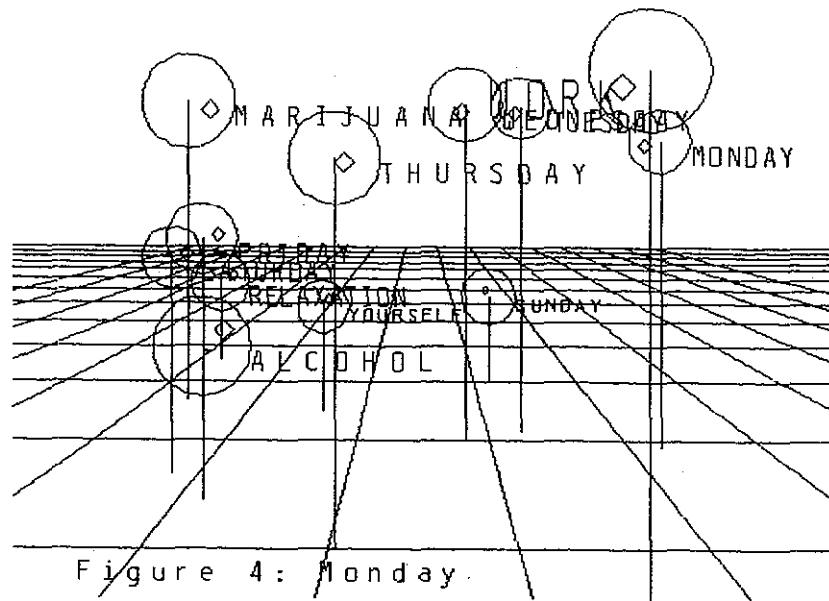 WORK
MARIJUANA
WEDNESDAY
TUESDAY
MONDAY
THURSDAY
FRIDAY
SATURDAY
RELAXATION
YOURSELF
SUNDAY
ALCOHOL
Figure 4: Monday